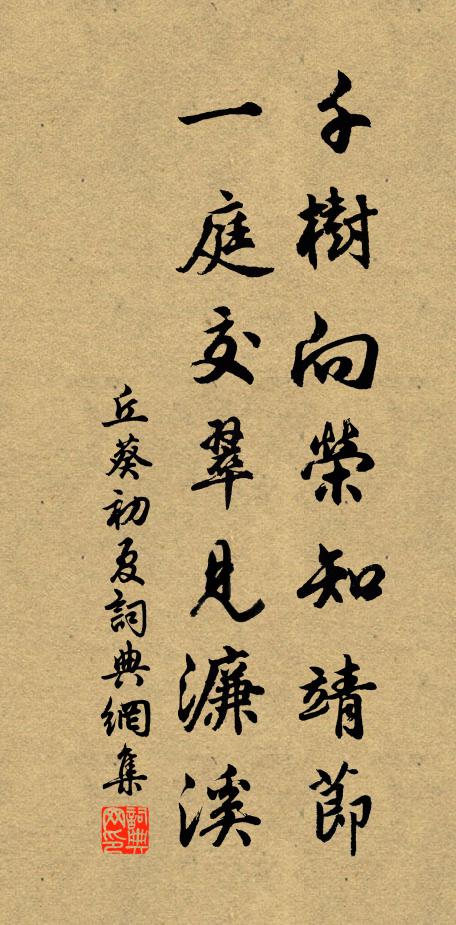 千樹向榮知靖節
一庭交翠見濂溪
丘葵初夏詞典網集
詞典網印